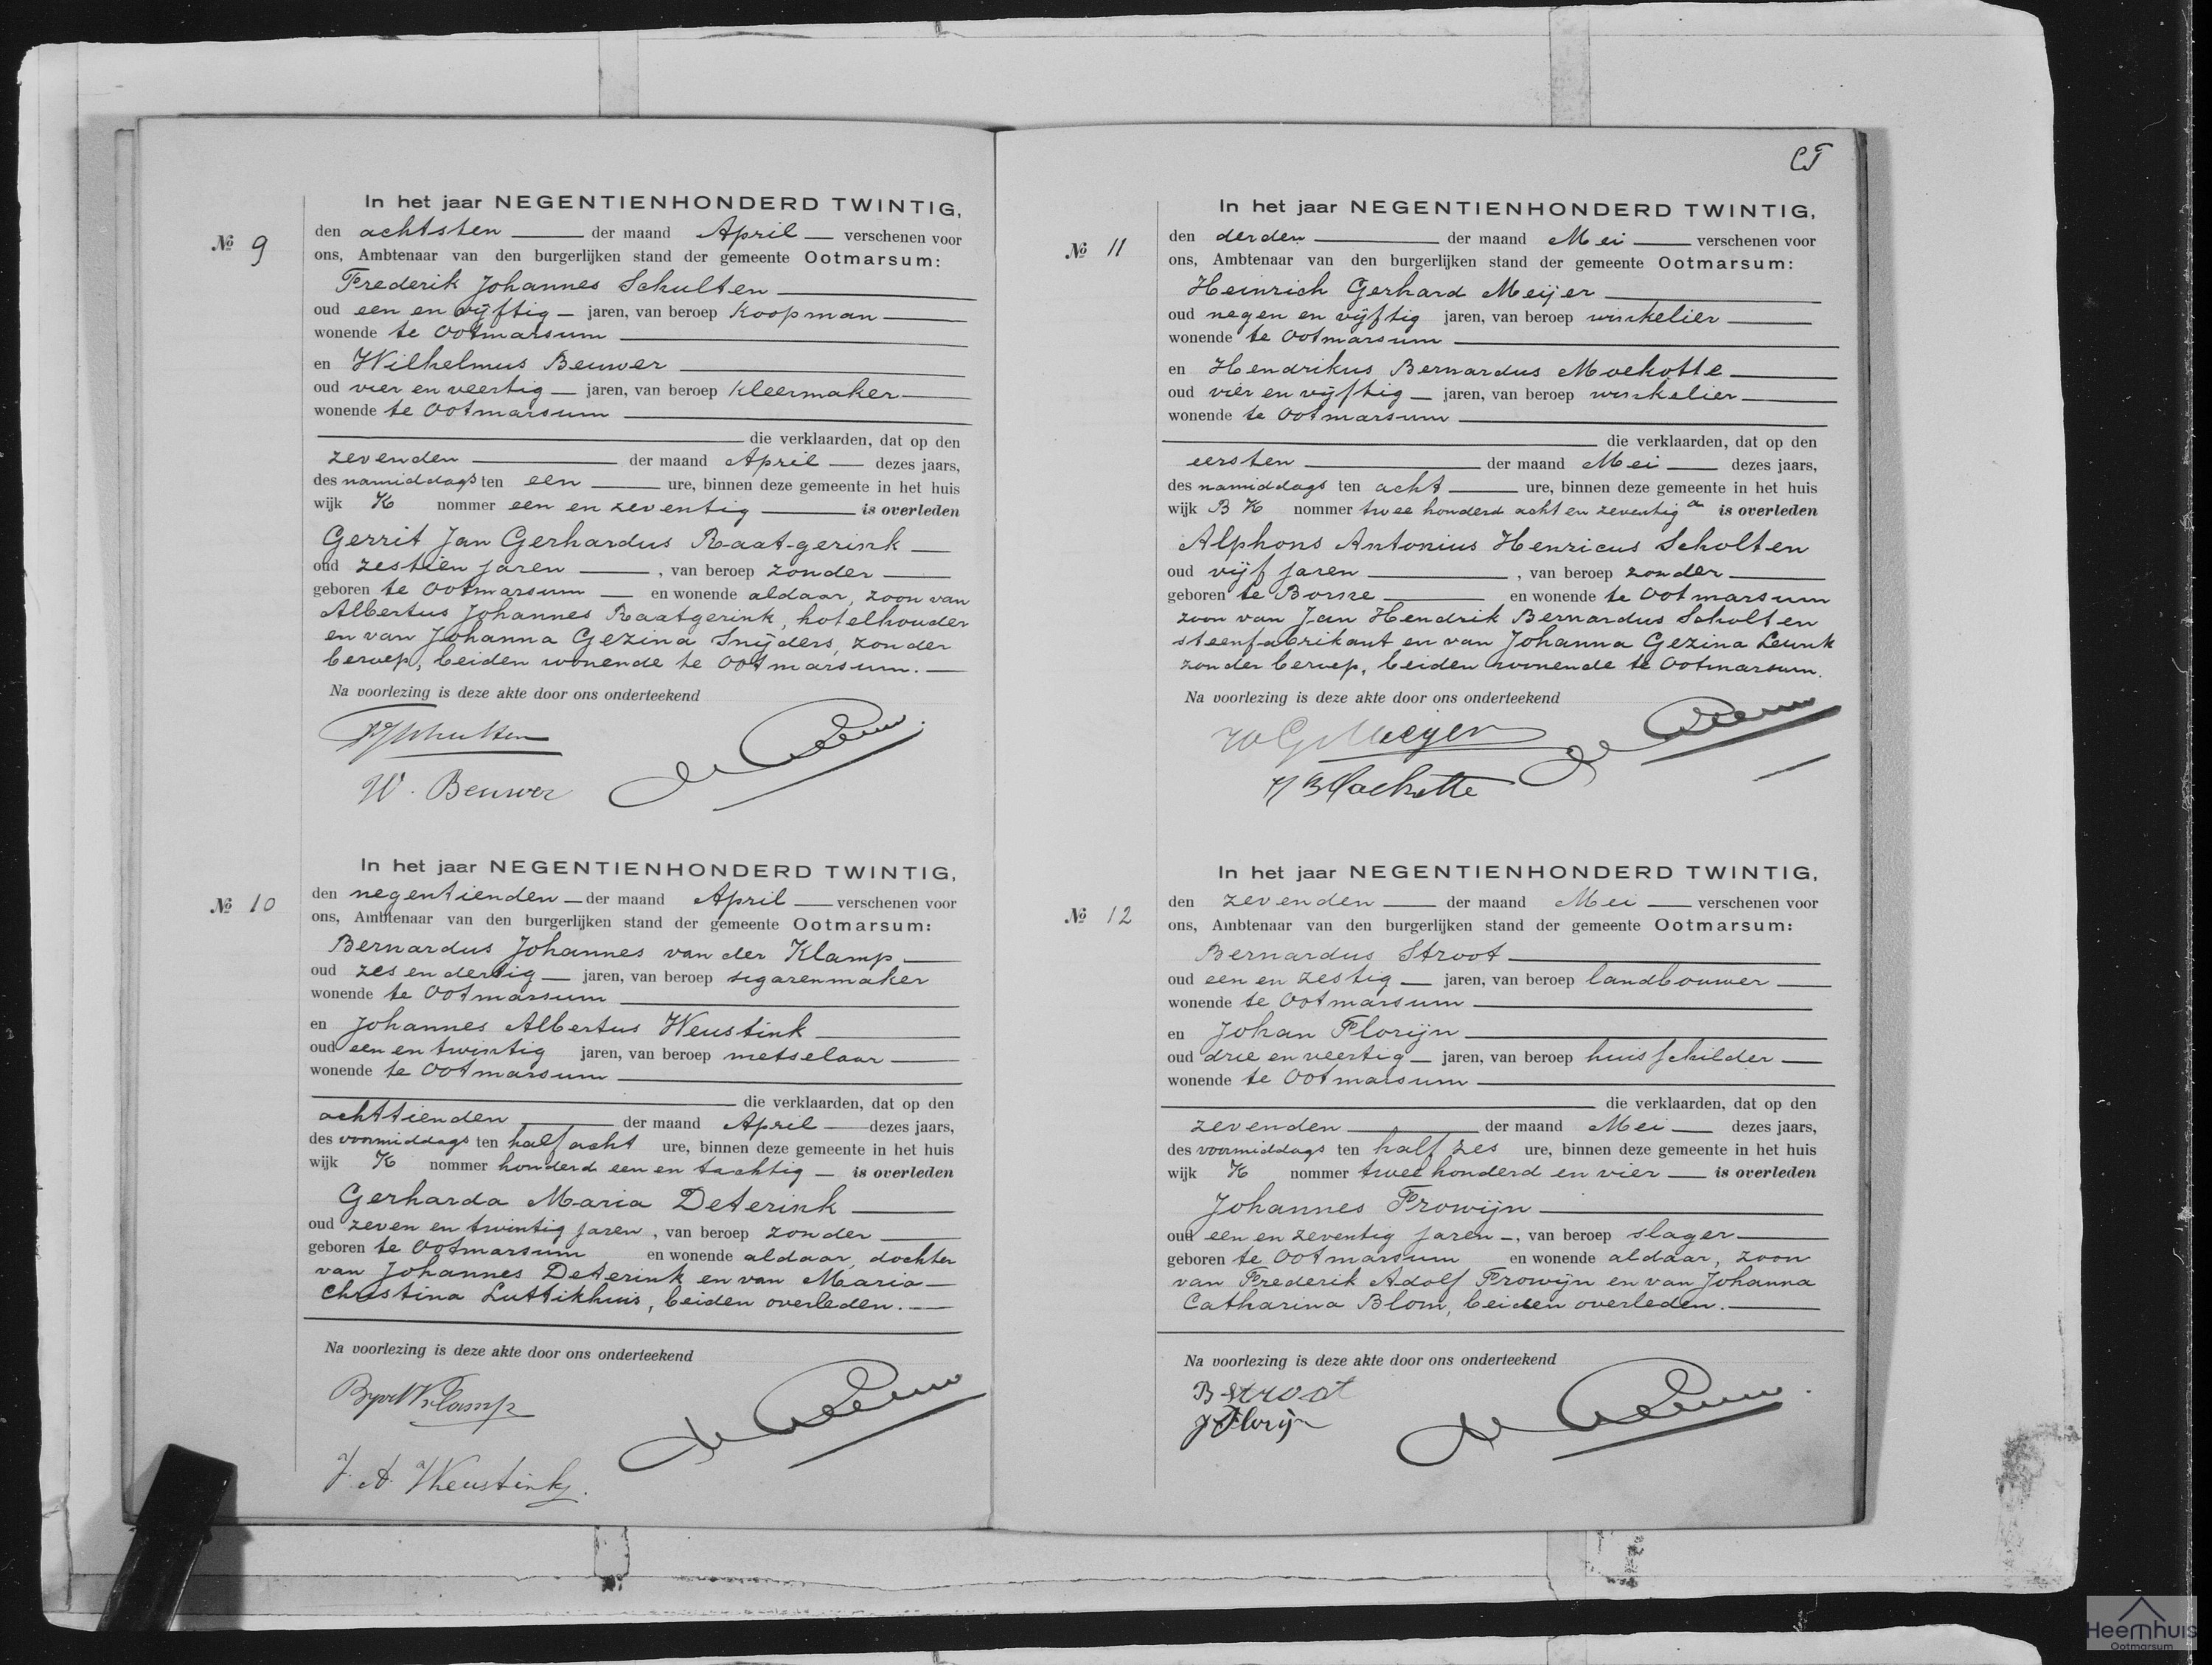 In het jaar NEGENTIENHONDERD TWINTIG,
№ 9
den achtsten der maand April verschenen voor
ons, Ambtenaar van den burgerlijken stand der gemeente Ootmarsum:
Frederik Johannes Schulten
oud een en vijftig jaren, van beroep Koopman
wonende te Ootmarsum
en Wilhelmus Beuwer
oud vier en veertig jaren, van beroep Kleermaker
wonende te Ootmarsum
die verklaarden, dat op den
zevenden der maand April dezes jaars,
des namiddags ten een ure, binnen deze gemeente in het huis
wijk K nommer een en zeventig is overleden
Gerrit Jan Gerhardus Raatgerink
oud zestien jaren, van beroep zonder
geboren te Ootmarsum en wonende aldaar, zoon van
Albertus Johannes Raatgerink, hotelhouder
en van Johanna Gezina Snijders, zonder
beroep, beiden wonende te Ootmarsum.
Na voorlezing is deze akte door ons onderteekend
FJSchulten
W. Beuwer
In het jaar NEGENTIENHONDERD TWINTIG,
№ 10
den negentienden der maand April verschenen voor
ons, Ambtenaar van den burgerlijken stand der gemeente Ootmarsum:
Bernardus Johannes van der Klamp
oud zes en dertig jaren, van beroep sigarenmaker
wonende te Ootmarsum
en Johannes Albertus Weustink
oud een en twintig jaren, van beroep metselaar
wonende te Ootmarsum
die verklaarden, dat op den
achttienden der maand April dezes jaars,
des voormiddags ten half acht ure, binnen deze gemeente in het huis
wijk K nommer honderd een en tachtig is overleden
Gerharda Maria Deterink
oud zeven en twintig jaren, van beroep zonder
geboren te Ootmarsum en wonende aldaar, dochter
van Johannes Deterink en van Maria
Christina Luttikhuis, beiden overleden.
Na voorlezing is deze akte door ons onderteekend
J. A. Weustink.
CT
In het jaar NEGENTIENHONDERD TWINTIG,
№ 11
den derden der maand Mei verschenen voor
ons, Ambtenaar van den burgerlijken stand der gemeente Ootmarsum:
Heinrich Gerhard Meijer
oud negen en vijftig jaren, van beroep winkelier
wonende te Ootmarsum
en Hendrikus Bernardus Moekotte
oud vier en vijftig jaren, van beroep winkelier
wonende te Ootmarsum
die verklaarden, dat op den
eersten der maand Mei dezes jaars,
des namiddags ten acht ure, binnen deze gemeente in het huis
wijk B K nommer twee honderd acht en zeventig a is overleden
Alphons Antonius Henricus Scholten
oud vijf jaren, van beroep zonder
geboren te Borne en wonende te Ootmarsum
zoon van Jan Hendrik Bernardus Scholten
steenfabrikant en van Johanna Gezina Leunk
zonder beroep, beiden wonende te Ootmarsum.
Na voorlezing is deze akte door ons onderteekend
In het jaar NEGENTIENHONDERD TWINTIG,
№ 12
den zevenden der maand Mei verschenen voor
ons, Ambtenaar van den burgerlijken stand der gemeente Ootmarsum:
Bernardus Stroot
oud een en zestig jaren, van beroep landbouwer
wonende te Ootmarsum
en Johan Florijn
oud drie en veertig jaren, van beroep huisschilder
wonende te Ootmarsum
die verklaarden, dat op den
zevenden der maand Mei dezes jaars,
des voormiddags ten half zes ure, binnen deze gemeente in het huis
wijk K nommer twee honderd en vier is overleden
Johannes Frowijn
oud een en zeventig jaren, van beroep slager
geboren te Ootmarsum en wonende aldaar, zoon
van Frederik Adolf Frowijn en van Johanna
Catharina Blom, beiden overleden.
Na voorlezing is deze akte door ons onderteekend
B Stroot
J Florijn
Heemhuis
Ootmarsum